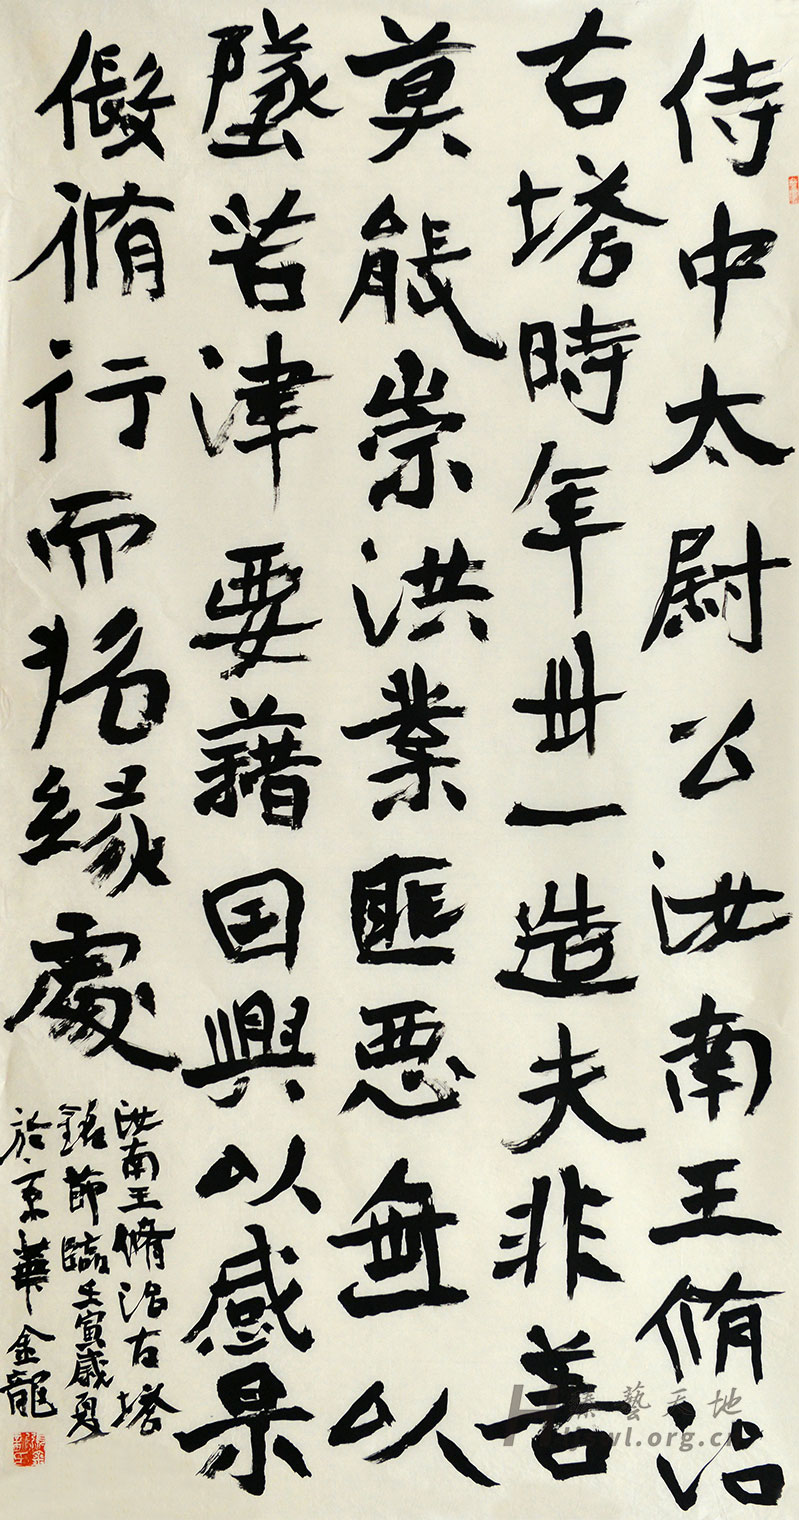 侍中太尉公汝南王脩治
古塔時年卅一造夫非善
莫能崇洪業匪悪無以
墜苦津要藉因興以感果
假脩行而招緣處
汝南王脩治古塔
銘節臨壬寅歲夏
於京華金龍
藝天地
yl.org.cn